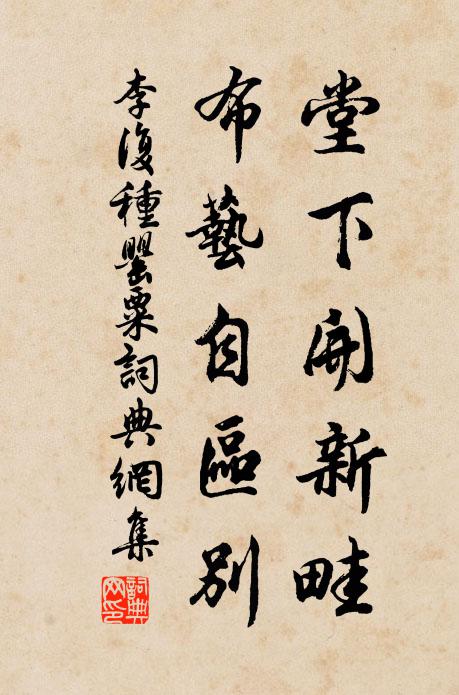 堂下開新畦
布藝自區別
李復種罌粟詞典網集
詞典網印